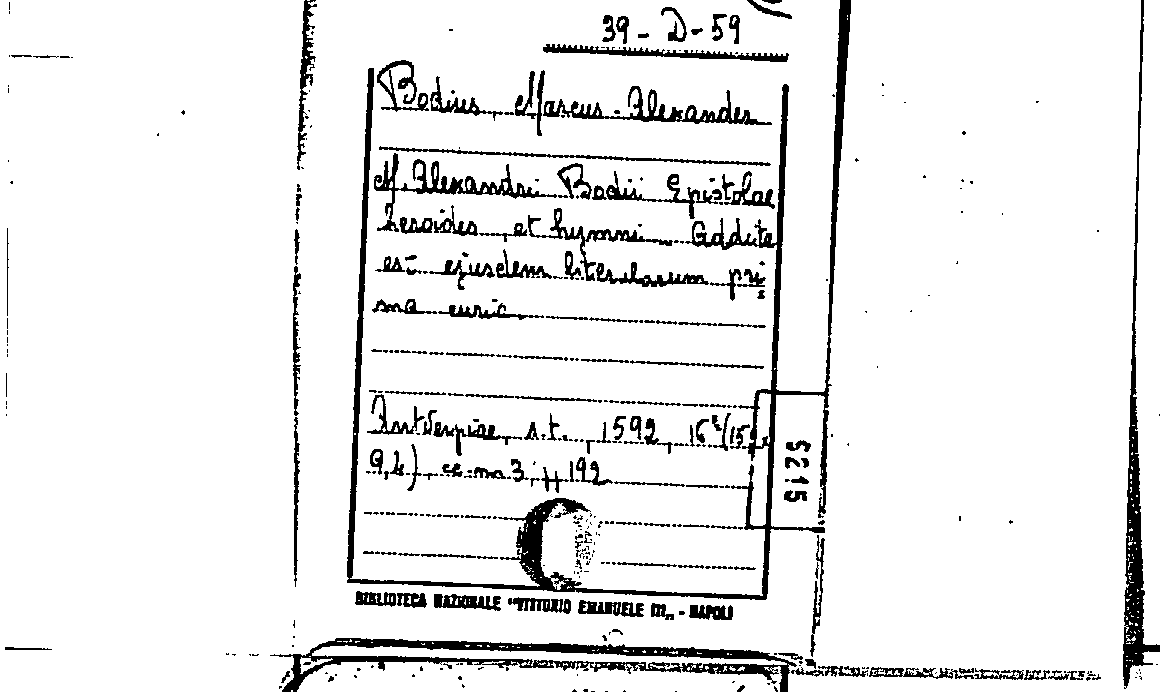 39-D-59
Bodius, Marcus-Alexander
M. Alexandri Bodii Epistolae
heroides, et hymni. Addita
est ejusdem literularum pri
ma curia.
Antverpiae, s.t., 1592, 16° (15 x
9,4), cc. nn 3, 192
5215
BIBLIOTECA NAZIONALE "VITTORIO EMANUELE III„ - NAPOLI